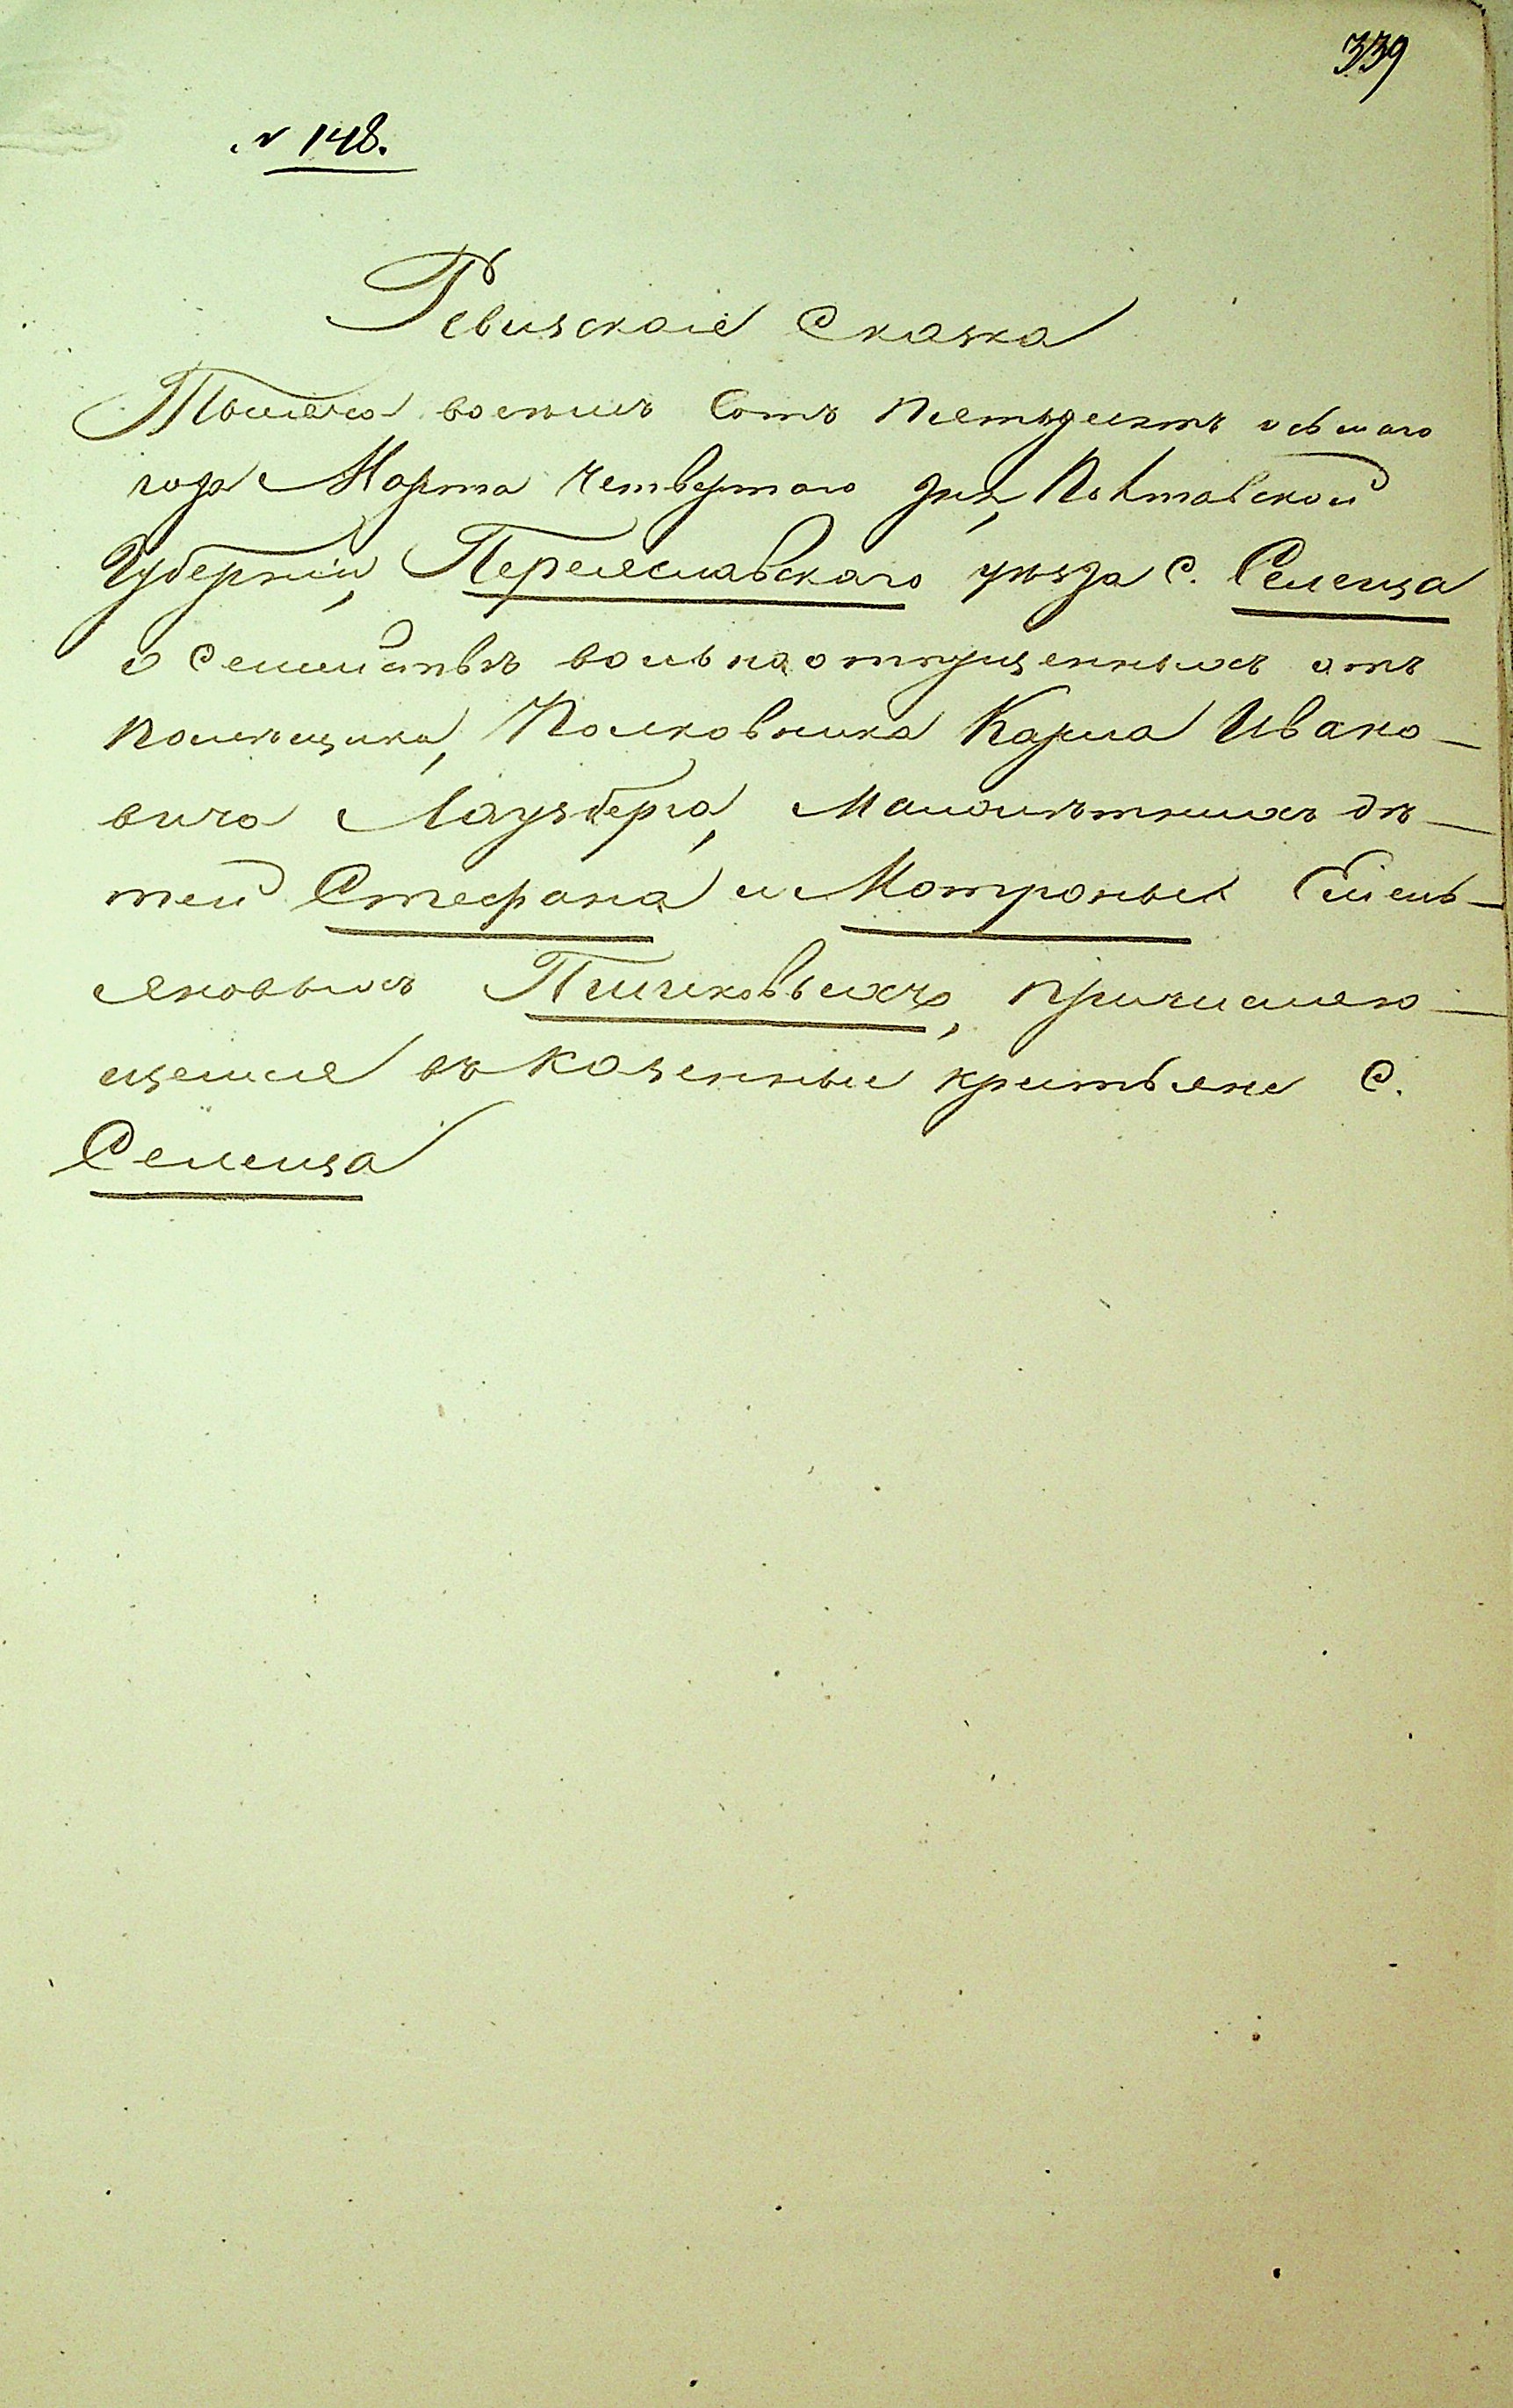 339
№ 148.
Ревизская Сказка
Тысяча восемь Сотъ пятьдесятъ осьмаго
года Марта четвертаго дня, Полтавской
Губерніи, Переяславскаго уѣзда С. Селеца
о семействѣ вольноотпущенныхъ отъ
помѣщика, Полковника Карла Ивано-
вича Лаузберга, Малолѣтнихъ дѣ-
тей Стефана и Мотроны Емель-
яновыхъ Пичиковыхъ, причисляю-
щемся въ казенные крестьяне С.
Селеца